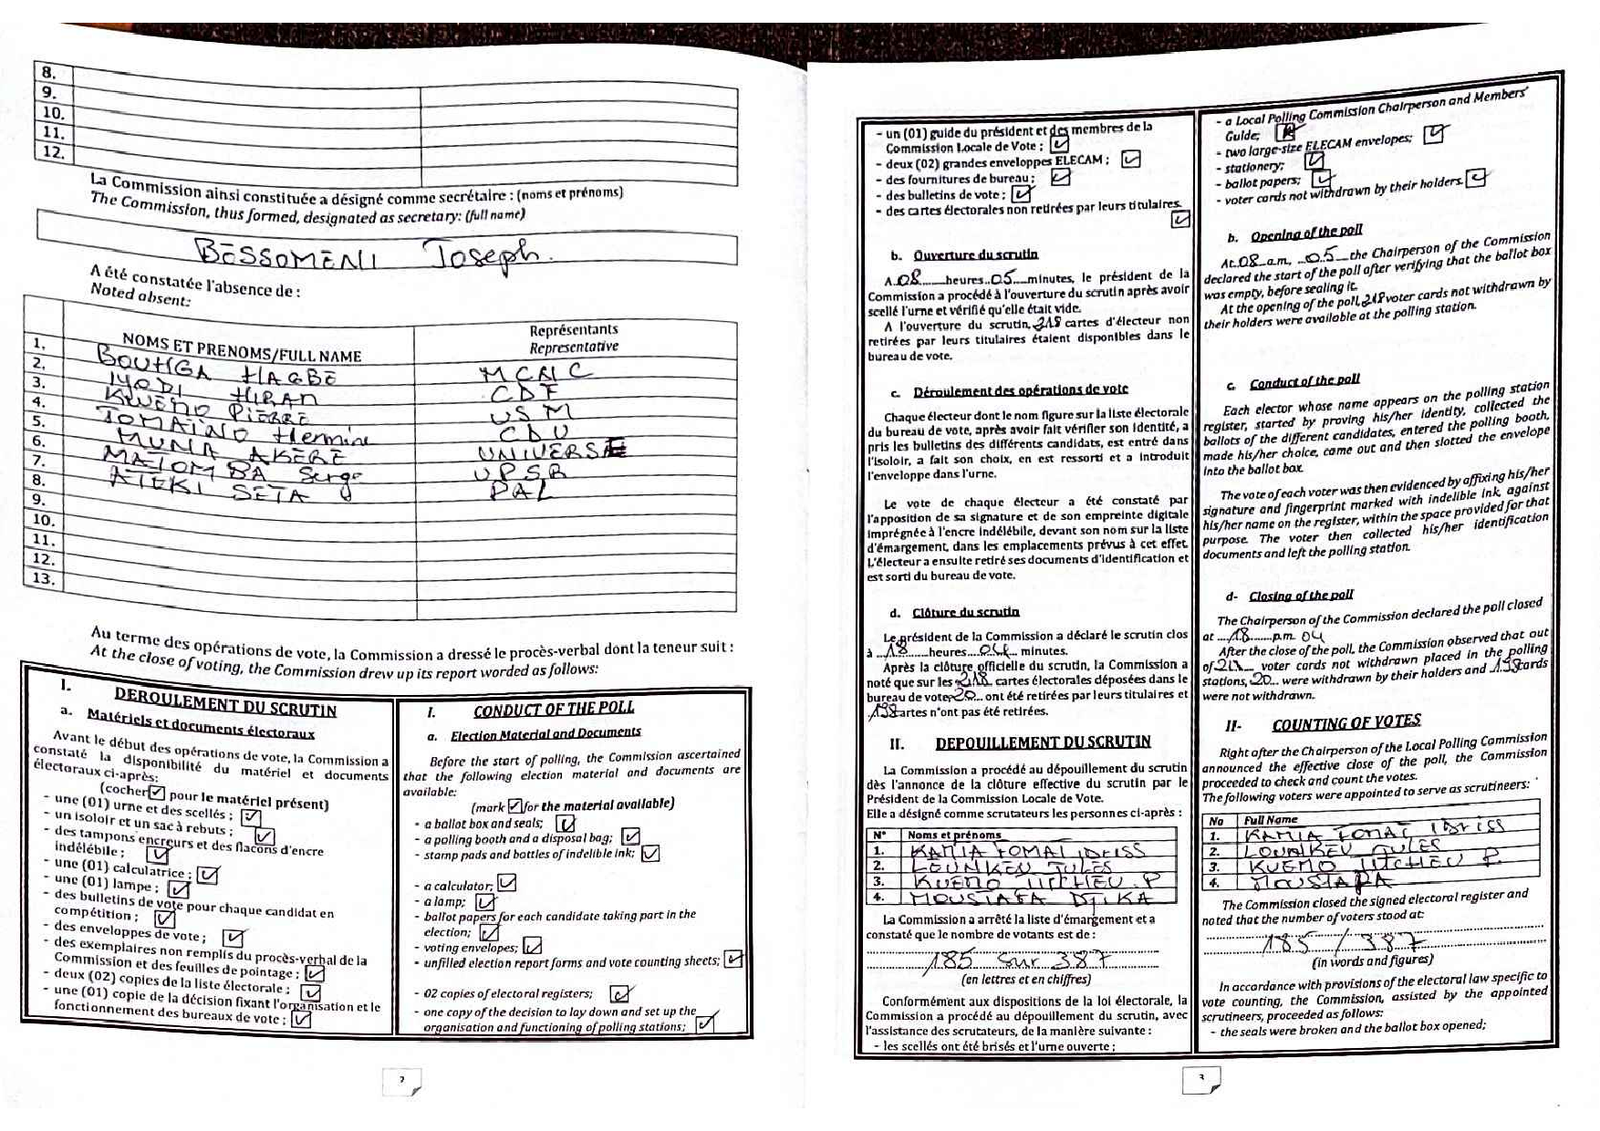 8.
9.
10.
11.
12.
La Commission ainsi constituée a désigné comme secrétaire : (noms et prénoms)
The Commission, thus formed, designated as secretary: (full name)
BESSOMENI Joseph.
A été constatée l'absence de :
Noted absent:
NOMS ET PRENOMS/FULL NAME
Représentants
Representative
1.
2. BOUHGA HAGBE MCNC
3. IYODI HIRAN CDF
4. KWEMO PIERRE USM
5. TOMAÏNO Hermine CDU
6. MUNA AKERE UNIVERSE
7. MATOMBA Serge UPSR
8. ATEKI SETA PAL
9.
10.
11.
12.
13.
Au terme des opérations de vote, la Commission a dressé le procès-verbal dont la teneur suit :
At the close of voting, the Commission drew up its report worded as follows:
I. DEROULEMENT DU SCRUTIN
a. Matériels et documents électoraux
Avant le début des opérations de vote, la Commission a
constaté la disponibilité du matériel et documents
électoraux ci-après:
(cocher pour le matériel présent)
- une (01) urne et des scellés ;
- un isoloir et un sac à rebuts ;
- des tampons encreurs et des flacons d'encre
indélébile ;
- une (01) calculatrice ;
- une (01) lampe ;
- des bulletins de vote pour chaque candidat en
compétition ;
- des enveloppes de vote ;
- des exemplaires non remplis du procès-verbal de la
Commission et des feuilles de pointage ;
- deux (02) copies de la liste électorale ;
- une (01) copie de la décision fixant l'organisation et le
fonctionnement des bureaux de vote ;
I. CONDUCT OF THE POLL
a. Election Material and Documents
Before the start of polling, the Commission ascertained
that the following election material and documents are
available:
(mark for the material available)
- a ballot box and seals;
- a polling booth and a disposal bag;
- stamp pads and bottles of indelible ink;
- a calculator;
- a lamp;
- ballot papers for each candidate taking part in the
election;
- voting envelopes;
- unfilled election report forms and vote counting sheets;
- 02 copies of electoral registers;
- one copy of the decision to lay down and set up the
organisation and functioning of polling stations;
2
- un (01) guide du président et des membres de la
Commission Locale de Vote ;
- deux (02) grandes enveloppes ELECAM ;
- des fournitures de bureau ;
- des bulletins de vote ;
- des cartes électorales non retirées par leurs titulaires.
b. Ouverture du scrutin
A 08 heures 05 minutes, le président de la
Commission a procédé à l'ouverture du scrutin après avoir
scellé l'urne et vérifié qu'elle était vide.
A l'ouverture du scrutin, 218 cartes d'électeur non
retirées par leurs titulaires étaient disponibles dans le
bureau de vote.
c. Déroulement des opérations de vote
Chaque électeur dont le nom figure sur la liste électorale
du bureau de vote, après avoir fait vérifier son identité, a
pris les bulletins des différents candidats, est entré dans
l'isoloir, a fait son choix, en est ressorti et a introduit
l'enveloppe dans l'urne.
Le vote de chaque électeur a été constaté par
l'apposition de sa signature et de son empreinte digitale
imprégnée à l'encre indélébile, devant son nom sur la liste
d'émargement, dans les emplacements prévus à cet effet.
L'électeur a ensuite retiré ses documents d'identification et
est sorti du bureau de vote.
d. Clôture du scrutin
Le président de la Commission a déclaré le scrutin clos
à 18 heures 04 minutes.
Après la clôture officielle du scrutin, la Commission a
noté que sur les 218 cartes électorales déposées dans le
bureau de vote 20 ont été retirées par leurs titulaires et
198 cartes n'ont pas été retirées.
II. DEPOUILLEMENT DU SCRUTIN
La Commission a procédé au dépouillement du scrutin
dès l'annonce de la clôture effective du scrutin par le
Président de la Commission Locale de Vote.
Elle a désigné comme scrutateurs les personnes ci-après :
N° Noms et prénoms
1. KAMTA FOMAI IDRISS
2. LOUNKEU JULES
3. KUEMO TITCHEU P
4. MOUSTAFA DJIKA
La Commission a arrêté la liste d'émargement et a
constaté que le nombre de votants est de :
185 sur 387
(en lettres et en chiffres)
Conformément aux dispositions de la loi électorale, la
Commission a procédé au dépouillement du scrutin, avec
l'assistance des scrutateurs, de la manière suivante :
- les scellés ont été brisés et l'urne ouverte ;
- a Local Polling Commission Chairperson and Members'
Guide;
- two large-size ELECAM envelopes;
- stationery;
- ballot papers;
- voter cards not withdrawn by their holders.
b. Opening of the poll
At 08 a.m, 05 the Chairperson of the Commission
declared the start of the poll after verifying that the ballot box
was empty, before sealing it.
At the opening of the poll, 218 voter cards not withdrawn by
their holders were available at the polling station.
c. Conduct of the poll
Each elector whose name appears on the polling station
register, started by proving his/her identity, collected the
ballots of the different candidates, entered the polling booth,
made his/her choice, came out and then slotted the envelope
into the ballot box.
The vote of each voter was then evidenced by affixing his/her
signature and fingerprint marked with indelible ink, against
his/her name on the register, within the space provided for that
purpose. The voter then collected his/her identification
documents and left the polling station.
d- Closing of the poll
The Chairperson of the Commission declared the poll closed
at 18 p.m. 04
After the close of the poll, the Commission observed that out
of 218 voter cards not withdrawn placed in the polling
stations, 20 were withdrawn by their holders and 198 cards
were not withdrawn.
II- COUNTING OF VOTES
Right after the Chairperson of the Local Polling Commission
announced the effective close of the poll, the Commission
proceeded to check and count the votes.
The following voters were appointed to serve as scrutineers:
No Full Name
1. KAMTA FOMAI IDRISS
2. LOUNKEU JULES
3. KUEMO TITCHEU P
4. MOUSTAFA
The Commission closed the signed electoral register and
noted that the number of voters stood at:
185 / 387
(in words and figures)
In accordance with provisions of the electoral law specific to
vote counting, the Commission, assisted by the appointed
scrutineers, proceeded as follows:
- the seals were broken and the ballot box opened;
3